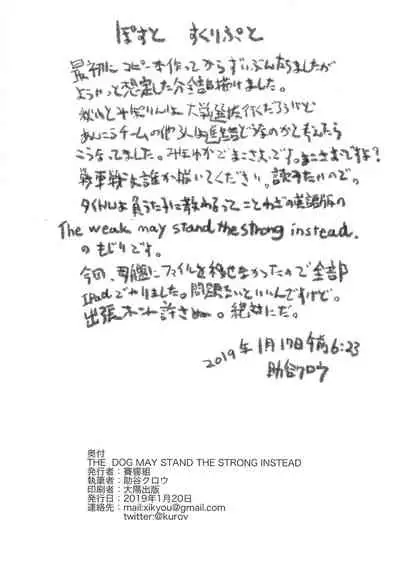 ぽすと すくりぷと
最初にコピー本作ってからずいぶんたちましたが
ようやっと想定した分全部描けました。
こうなってました。みほまかでまこさおです。まこさおですよ?
戦車戦は誰か描いてください。読みたいので。
タイトルは負うた子に教わるってことわざの英語版の
The weak may stand the strong instead.
のもじりです。
今回、母艦にファイルを移せなかったので全部
iPadでやりました。問題ないといいんですけど。
出張ホント許さぬ。絶対にだ。
2019年1月17日午前6:23
助谷クロウ
奥付
THE DOG MAY STAND THE STRONG INSTEAD
発行者:賽響組
執筆者:助谷クロウ
印刷者:大陽出版
発行日:2019年1月20日
連絡先:mail:xikyou@gmail.com
twitter:@kurov